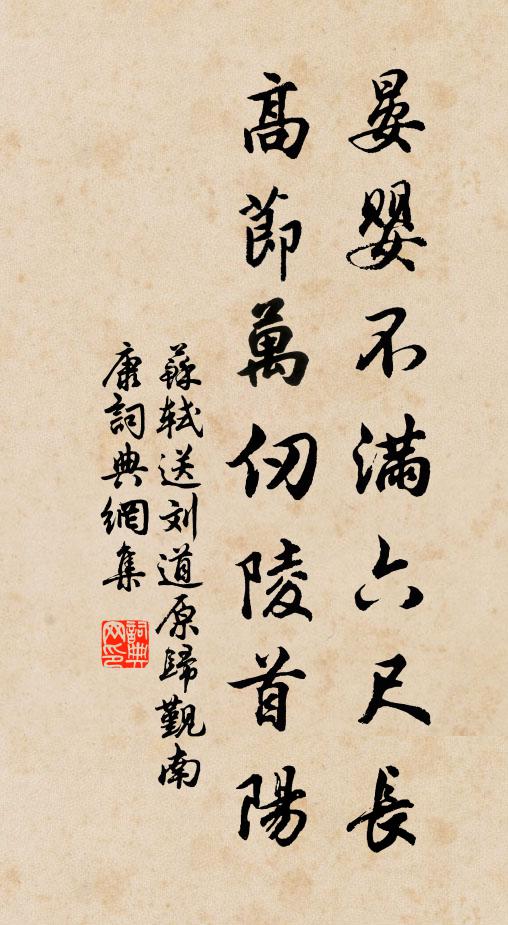 晏嬰不滿六尺長
高節萬仞陵首陽
蘇軾送刘道原歸觀南
康詞典網集
詞典网印